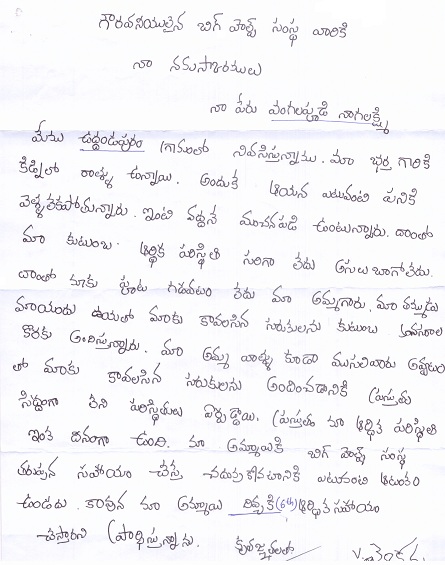 గౌరవనీయులైన బిగ్ హెల్ప్ సంస్థ వారికి
నా నమస్కారములు
నా పేరు వంగలపూడి నాగలక్ష్మి
మేము ఉద్దండపురం గ్రామంలో నివసిస్తున్నాము. మా భర్త గారికి
కిడ్నీలో రాళ్ళు ఉన్నాయి. అందుకే ఆయన ఎటువంటి పనికి
వెళ్ళలేకపోతున్నారు. ఇంటి వద్దనే మంచనపడి ఉంటున్నారు. దాంతో
మా కుటుంబ ఆర్థిక పరిస్థితి సరిగా లేదు అసలు బాగోలేదు.
దాంతో మాకు పూట గడవటం లేదు మా అమ్మగారు, మా తమ్ముడు
మాయందు దయతో మాకు కావలసిన సరుకులను కుటుంబ
కొరకు అందిస్తున్నారు. మా అమ్మ వాళ్ళు కూడా ముసలివారు అవ్వటం
తో మాకు కావలసిన సరుకులను అందించడానికి ప్రస్తుతం
సిద్దంగా లేని పరిస్థితులు ఏర్పడ్డాయి. ప్రస్తుతం మా ఆర్థిక పరిస్థితి
ఇంత దీనంగా ఉంది. మా అమ్మాయికి బిగ్ హెల్ప్ సంస్థ
తరుపున సహాయం చేస్తే చదువుకోవటానికి ఎటువంటి ఆటంకం
ఉండదు. కావున మా అమ్మాయి దివ్యకి (6th) ఆర్థిక సహాయం
చేస్తారని ప్రార్థిస్తున్నాను. కృతజ్ఞతలతో